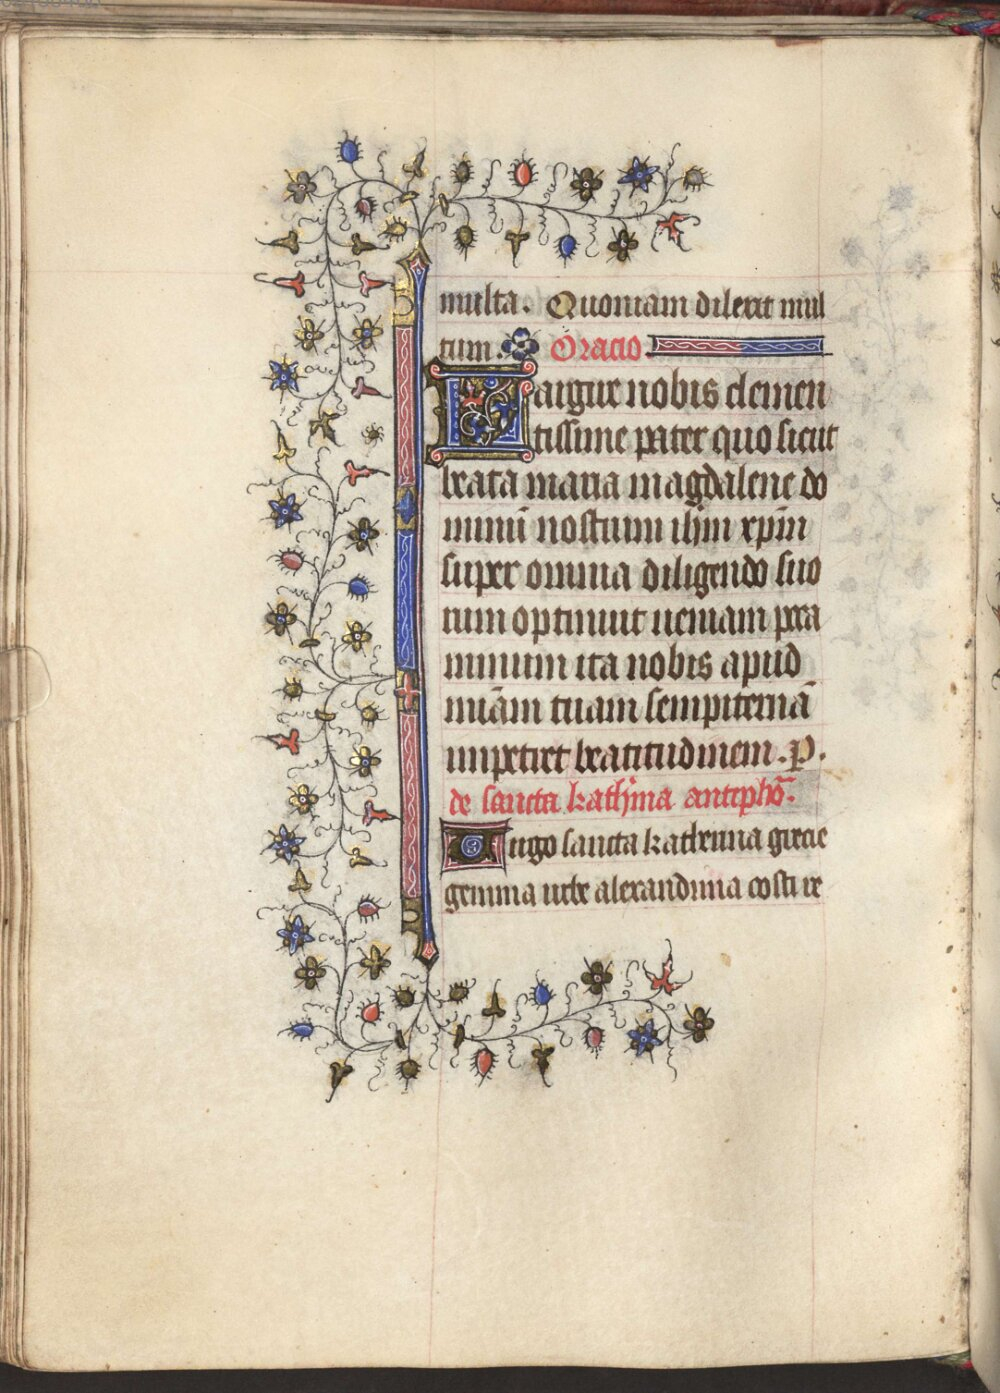 multa. Quoniam dilexit mul
tum. Oracio
Largire nobis clemen
tissime pater quo sicut
beata maria magdalene do
minū nostrum ihm̄ xpm̄
super omnia diligendo suo
rum optinuit ueniam pecca
minum ita nobis apud
miām tuam sempiternā
impetret beatitudinem. P.
de sancta katherina antepho.
Uirgo sancta katherina grecie
gemma urbe alexandrina costi re